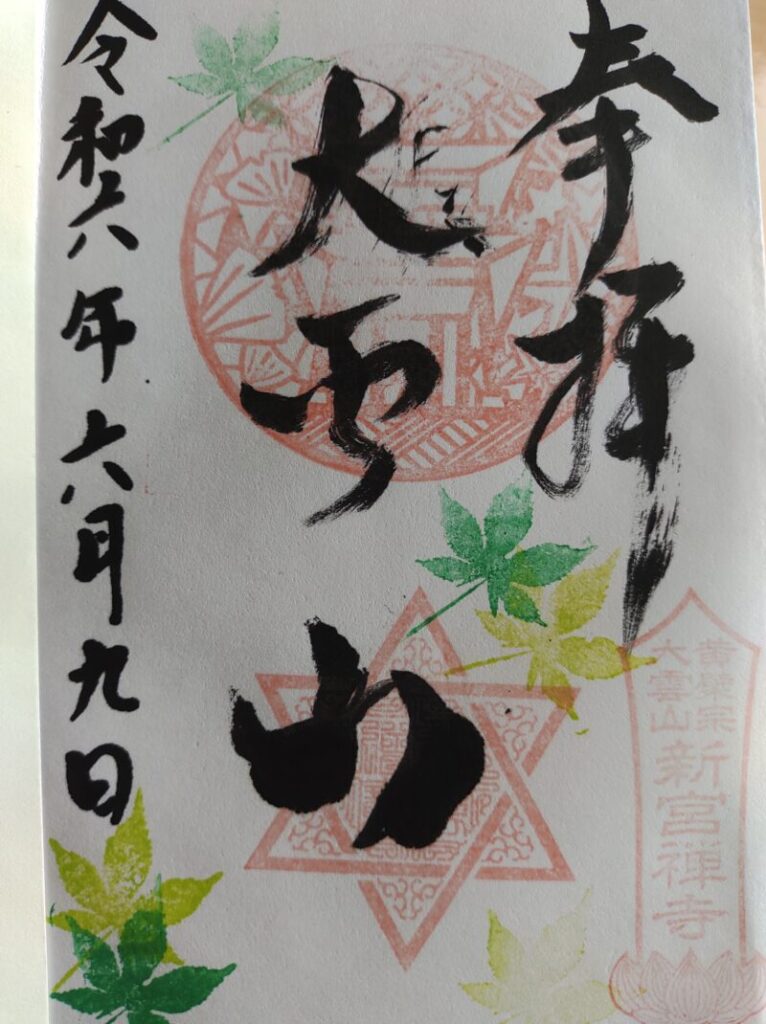 奉拝
大雲山
令和六年六月九日
黄檗宗
大雲山
新宮禅寺